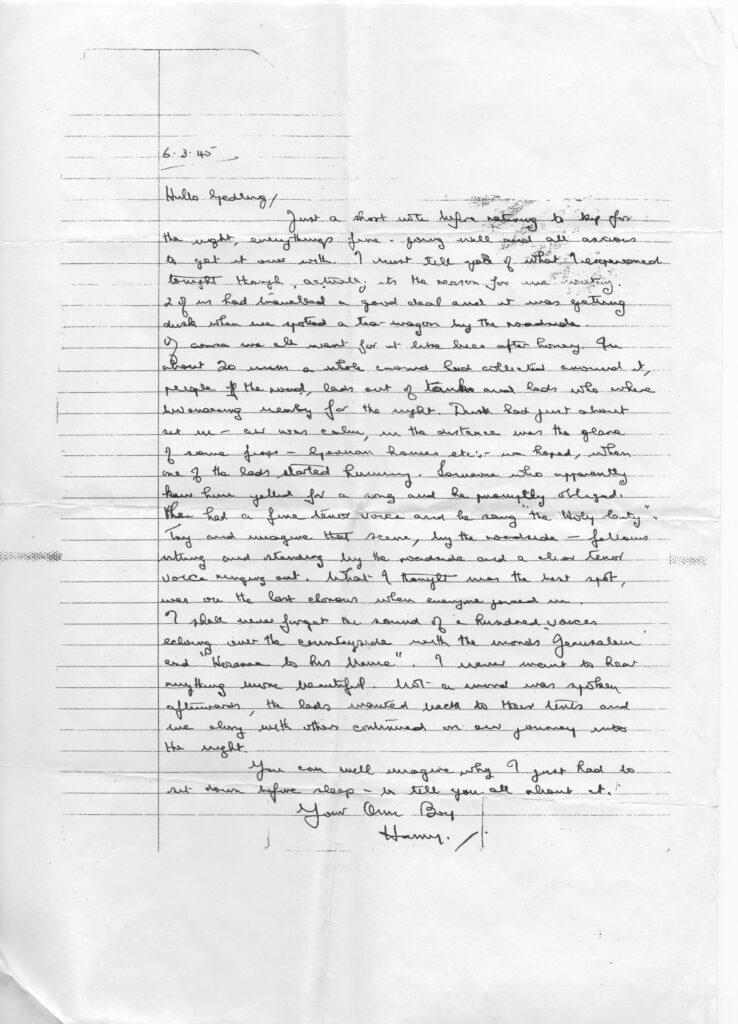 6.3.45
Hullo Gedling,
Just a short note before retiring to kip for
the night, everythings fine - going well and all anxious
to get it over with. I must tell you of what I experienced
tonight though, actually its the reason for me writing.
2 of us had travelled a good deal and it was getting
dusk when we spotted a tea-wagon by the roadside.
Of course we all went for it like bees after honey. In
about 20 mins a whole crowd had collected around it,
people off the road, lads out of tanks and lads who where
bivouacing nearby for the night. Dusk had just about
set in - air was calm, in the distance was the glare
of some fires - German homes etc:- we hoped, when
one of the lads started humming. Someone who apparently
knew him yelled for a song and he promptly obliged.
He had a fine tenor voice and he sang "the Holy City".
Try and imagine that scene, by the roadside - fellows
sitting and standing by the roadside and a clear tenor
voice ringing out. What I thought was the best spot,
was on the last chorus when everyone joined in.
I shall never forget the sound of a hundred voices
echoing over the countryside with the words Jerusalem
and "Hosanna to his Name". I never want to hear
anything more beautiful. Not a word was spoken
afterwards, the lads wanted back to their tents and
we along with others continued on our journey into
the night.
You can well imagine why I just had to
sit down before sleep - to tell you all about it.
Your Own Boy
Harry.